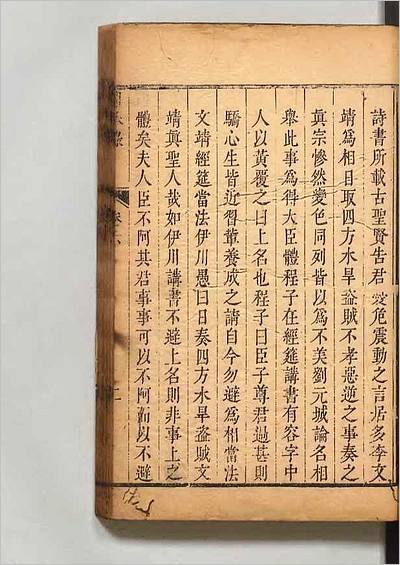 詩書所載古聖賢告君愛危震動之言居多李文
靖爲相日取四方水旱盜賊不孝惡逆之事奏之
眞宗慘然變色同列皆以爲不美劉元城論名相
舉此事爲得大臣體程子在經筵講書有容字中
人以黃覆之曰上名也程子曰臣子尊君過甚則
驕心生皆近習軰養成之請自今勿避爲相當法
文靖經筵當法伊川愚曰日奏四方水旱盜賊文
靖眞聖人㢤如伊川講書不避上名則非事上之
體矣夫人臣不阿其君事事可以不阿而以不避
卷六
二